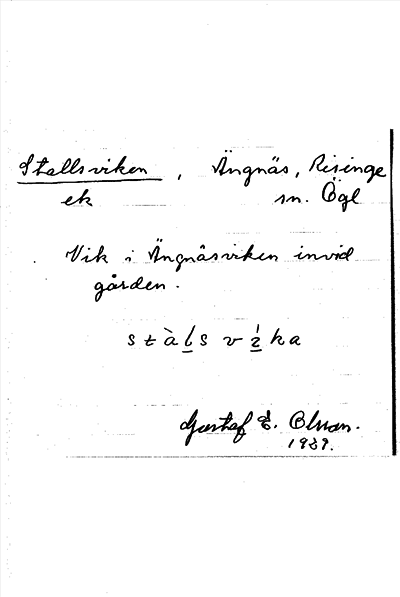 Stallsviken, Ängnäs, Risinge
ek sn. Ögl
Vik i Ängnäsviken invid
gården.
stàlsvíka
Gustaf E. Olsson.
1939.